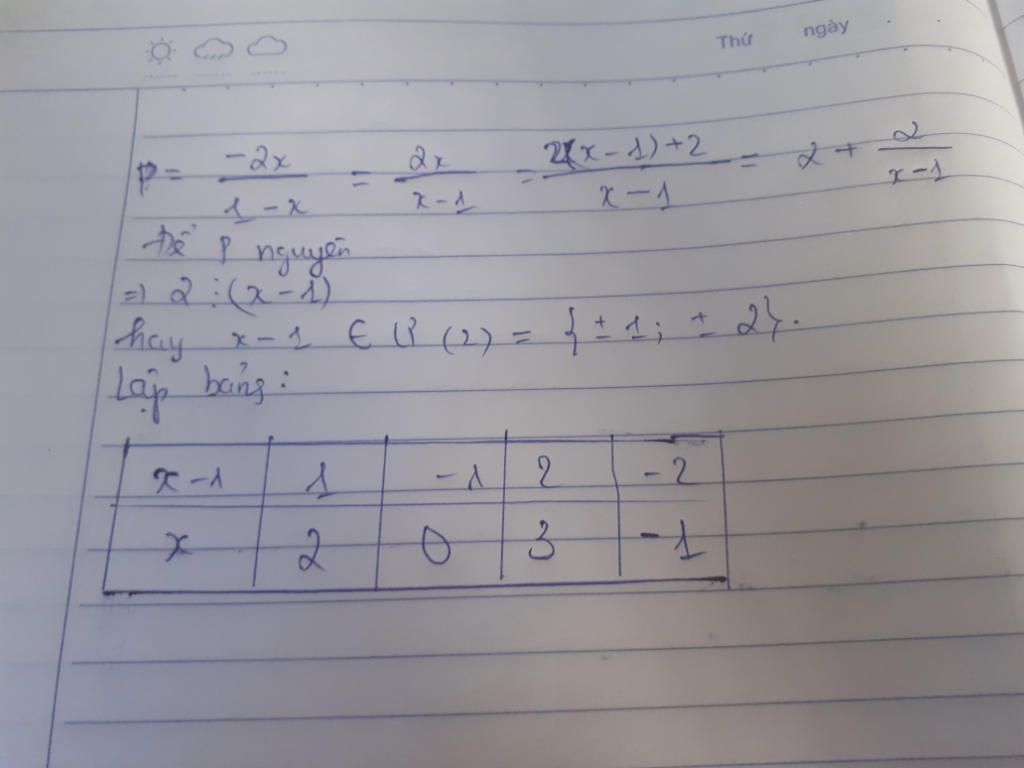 Thứ ngày
P = \frac{-2x}{1-x} = \frac{2x}{x-1} = \frac{2(x-1)+2}{x-1} = 2 + \frac{2}{x-1}
Để P nguyên
=> 2 ⋮ (x-1)
hay x-1 ∈ Ư (2) = {±1; ±2}.
Lập bảng:
x-1 1 -1 2 -2
x 2 0 3 -1